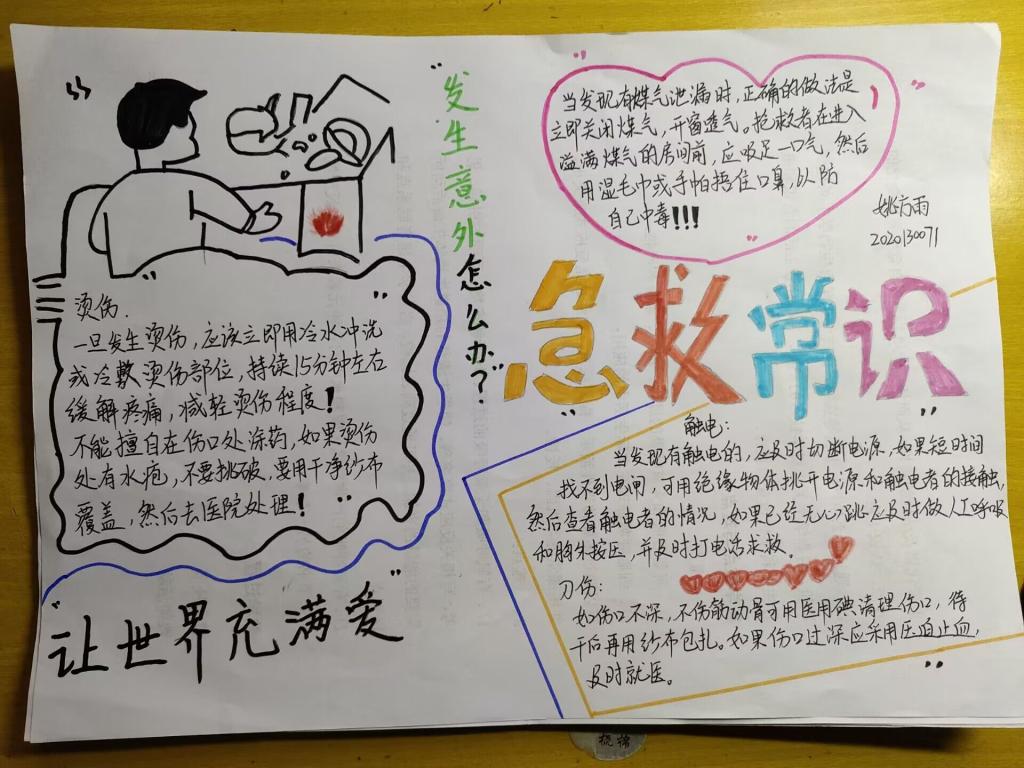 发生意外怎么办？
当发现有煤气泄漏时，正确的做法是
立即关闭煤气，开窗透气。抢救者在进入
溢满煤气的房间前，应吸足一口气，然后
用湿毛巾或手帕捂住口鼻，以防
自己中毒!!!
姚方雨
2020130071
急救常识
烫伤.
一旦发生烫伤，应该立即用冷水冲洗
或冷敷烫伤部位，持续15分钟左右
缓解疼痛，减轻烫伤程度！
不能擅自在伤口处涂药，如果烫伤
处有水疱，不要挑破，要用干净纱布
覆盖，然后去医院处理！
触电：
当发现有触电的，应及时切断电源，如果短时间
找不到电闸，可用绝缘物体挑开电源和触电者的接触，
然后查看触电者的情况，如果已经无心跳应及时做人工呼吸
和胸外按压，并及时打电话求救。
刀伤：
如伤口不深，不伤筋动骨可用医用碘清理伤口，待
干后再用纱布包扎。如果伤口过深应采用压迫止血，
及时就医。
“让世界充满爱”